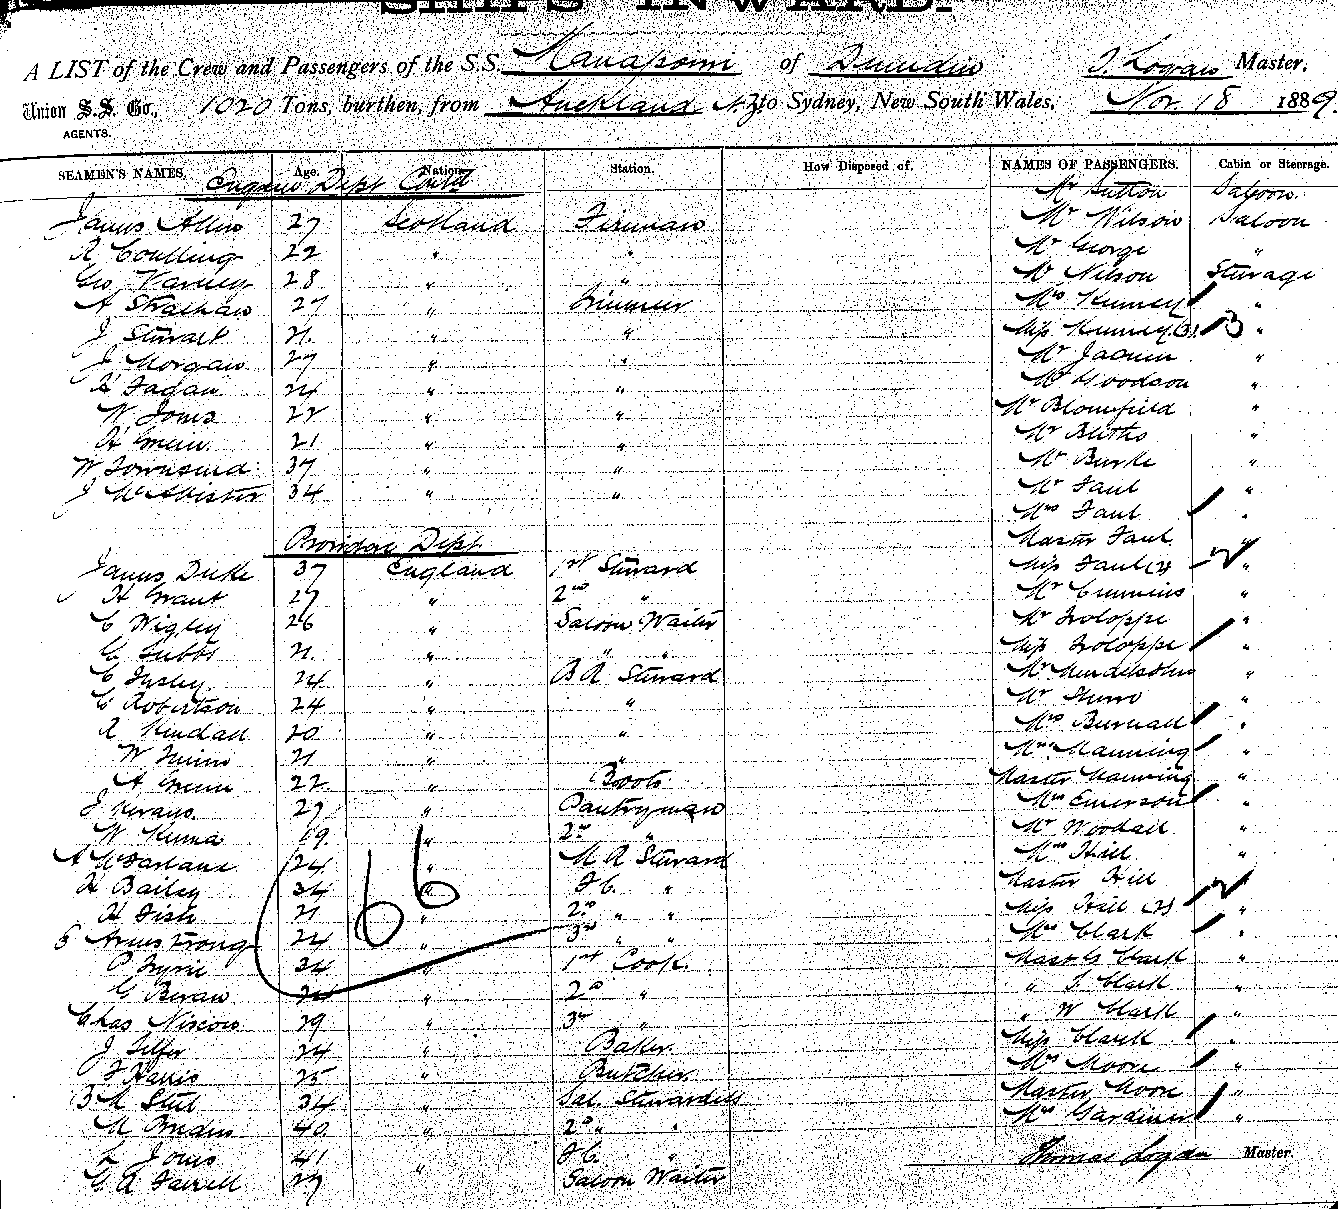 SHIPS INWARD.
A LIST of the Crew and Passengers of the S.S. Manapouri of Dunedin T. Logan Master,
Union S.S. Co., AGENTS. 1020 Tons, burthen, from Auckland NZ to Sydney, New South Wales, Nov. 18 1889
SEAMEN'S NAMES. Age. Nation. Station. How Disposed of. NAMES OF PASSENGERS. Cabin or Steerage.
Engine Dept Contd Mr Sutton Saloon
James Allen 27 Scotland Fireman Mr Wilson Saloon
R Coulling 22 " " Mr George "
Geo Varney 28 " " Mr Nilson Steerage
A Strathan 27 " Trimmer Mrs Kenney "
J Stewart 21 " " Miss Kenney (3) 3 "
J Morgan 27 " " Mr "
H Fagan 24 " " Mr Woodson "
W Jones 22 " " Mr Blomfield "
H Green 21 " " Mr "
W Townsend 37 " " Mr Burke "
J McAllister 34 " " Mr Faul "
Mrs Faul "
Providore Dept Master Faul "
James Duke 37 England 1st Steward Miss Faul (2) 2 "
H Grant 27 " 2nd " Mr Cummins "
C Wigley 26 " Saloon Waiter Mr Troloppe "
G Tubbs 21 " " " Miss Troloppe "
C Insley 24 " B R Steward Mr Mendelsohn "
C Robertson 24 " " Mr "
R Kendall 20 " " Mrs Burnall "
W 21 " " Mrs Manning "
A Green 22 " Boots Master Manning "
J 27 " Pantryman Mrs Emerson "
W 19 " 2nd " Mr Woodall "
A McFarlane 24 " M R Steward Mrs Hill "
H Bailey 34 " F C. " Master Hill "
H Fish 21 " 2nd " " Miss Hill (2) 2 "
S Armstrong 24 " 3rd " " Mrs Clark "
P 34 " 1st Cook Mast G Clark "
G Bevan 24 " 2nd " " T Clark "
Chas 29 " 3rd " " W Clark "
J Telfer 24 " Baker Miss Clark "
F Harris 25 " Butcher Mrs Moon "
B M Steel 34 " Sal Stewardess Master Moon "
M 40 " 2nd " " Mrs Gardiner "
L Jones 41 " F C. " Thomas Logan Master.
G A Farrell 27 Saloon Waiter
66